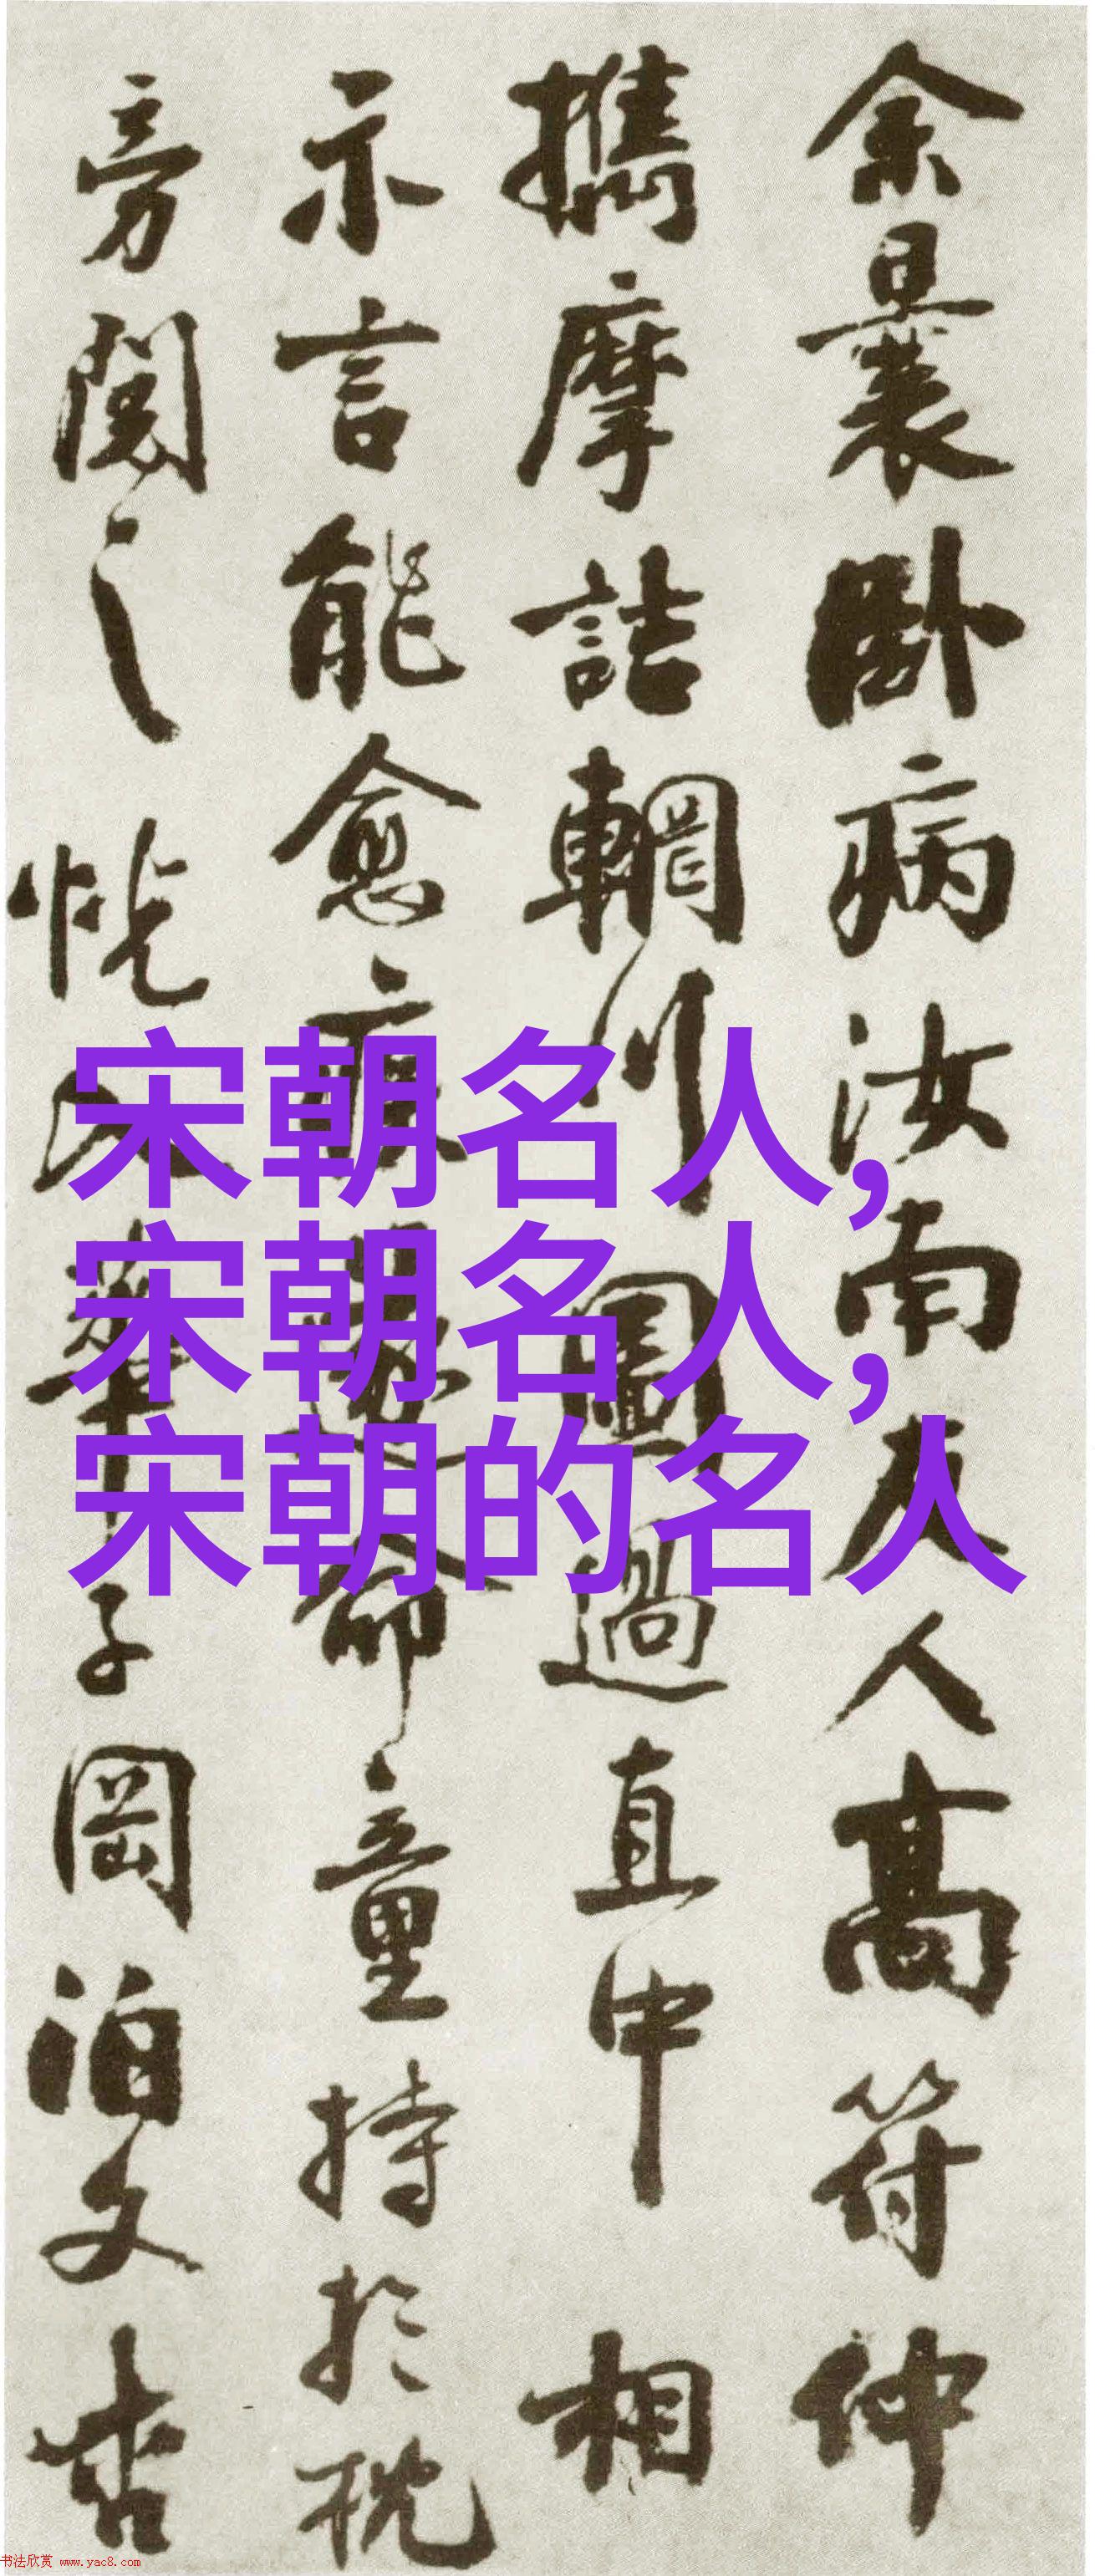 余曩卧病汝南友人高符仲
攜摩詰輞川圖過直中相
示言能愈疾遂命童持於枕
旁閱之恍入華子岡泊文杏
宋朝名人,
宋朝名人,
宋朝的名人
书法欣赏 www.yac8.com